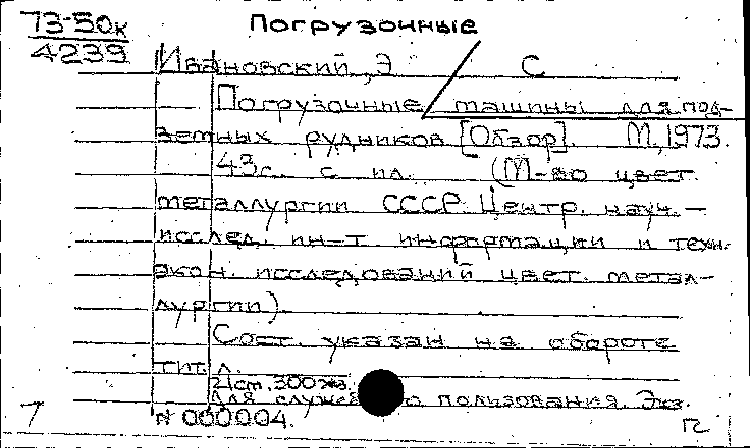 73-50к
4239
Погрузочные
Ивановский, Э С
Погрузочные машины для под-
земных рудников [Обзор]. М., 1973.
43с. с ил. (М-во цвет.
металлургии СССР. Центр. науч.-
исслед. ин-т информации и техн.
экон. исследований цвет. метал-
лургии).
Сост. указан на обороте
тит. л.
21ст. 300экз.
Для служеб о пользования. Экз.
№ 000004.